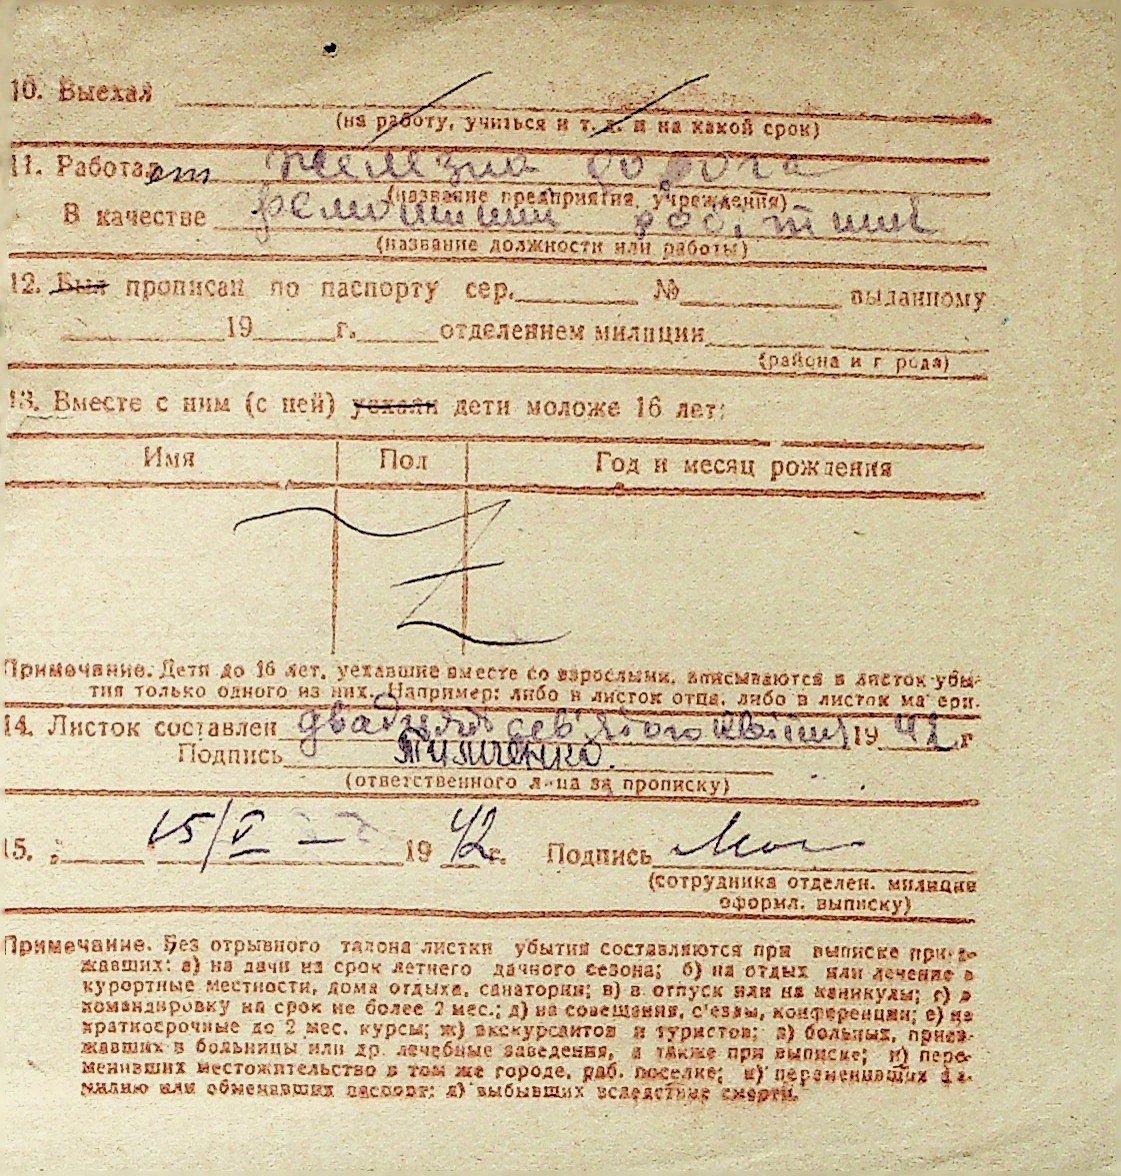 10. Выехал
(на работу, учиться и т. д. и на какой срок)
11. Работает железна дорога
(название предприятия, учреждения)
В качестве робітник
(название должности или работы)
12. Был прописан по паспорту сер. № выданному
19 г. отделением милиции
(района и г рода)
13. Вместе с ним (с ней) уехали дети моложе 16 лет:
Имя Пол Год и месяц рождения
Примечание. Дети до 16 лет, уехавшие вместе со взрослыми, вписываются в листок убы-
тия только одного из них. Например: либо в листок отца, либо в листок ма ери.
14. Листок составлен двадцять сев'ятого квітня 19 42 г
Подпись Тимченко.
(ответственного лица за прописку)
15. " 15/V 19 42 г. Подпись
(сотрудника отделен. милиции
оформл. выписку)
Примечание. Без отрывного талона листки убытия составляются при выписке приез-
жавших: а) на дачи на срок летнего дачного сезона; б) на отдых или лечение в
курортные местности, дома отдыха, санатории; в) в отпуск или на каникулы; г) в
командировку на срок не более 2 мес.; д) на совещания, с'езды, конференции; е) на
краткосрочные до 2 мес. курсы; ж) экскурсантов и туристов; з) больных, приез-
жавших в больницы или др. лечебные заведения, а также при выписке; и) пере-
менивших местожительство в том же городе, раб. поселке; к) переменивших фа-
милию или обменявших паспорт; л) выбывших вследствие смерти.